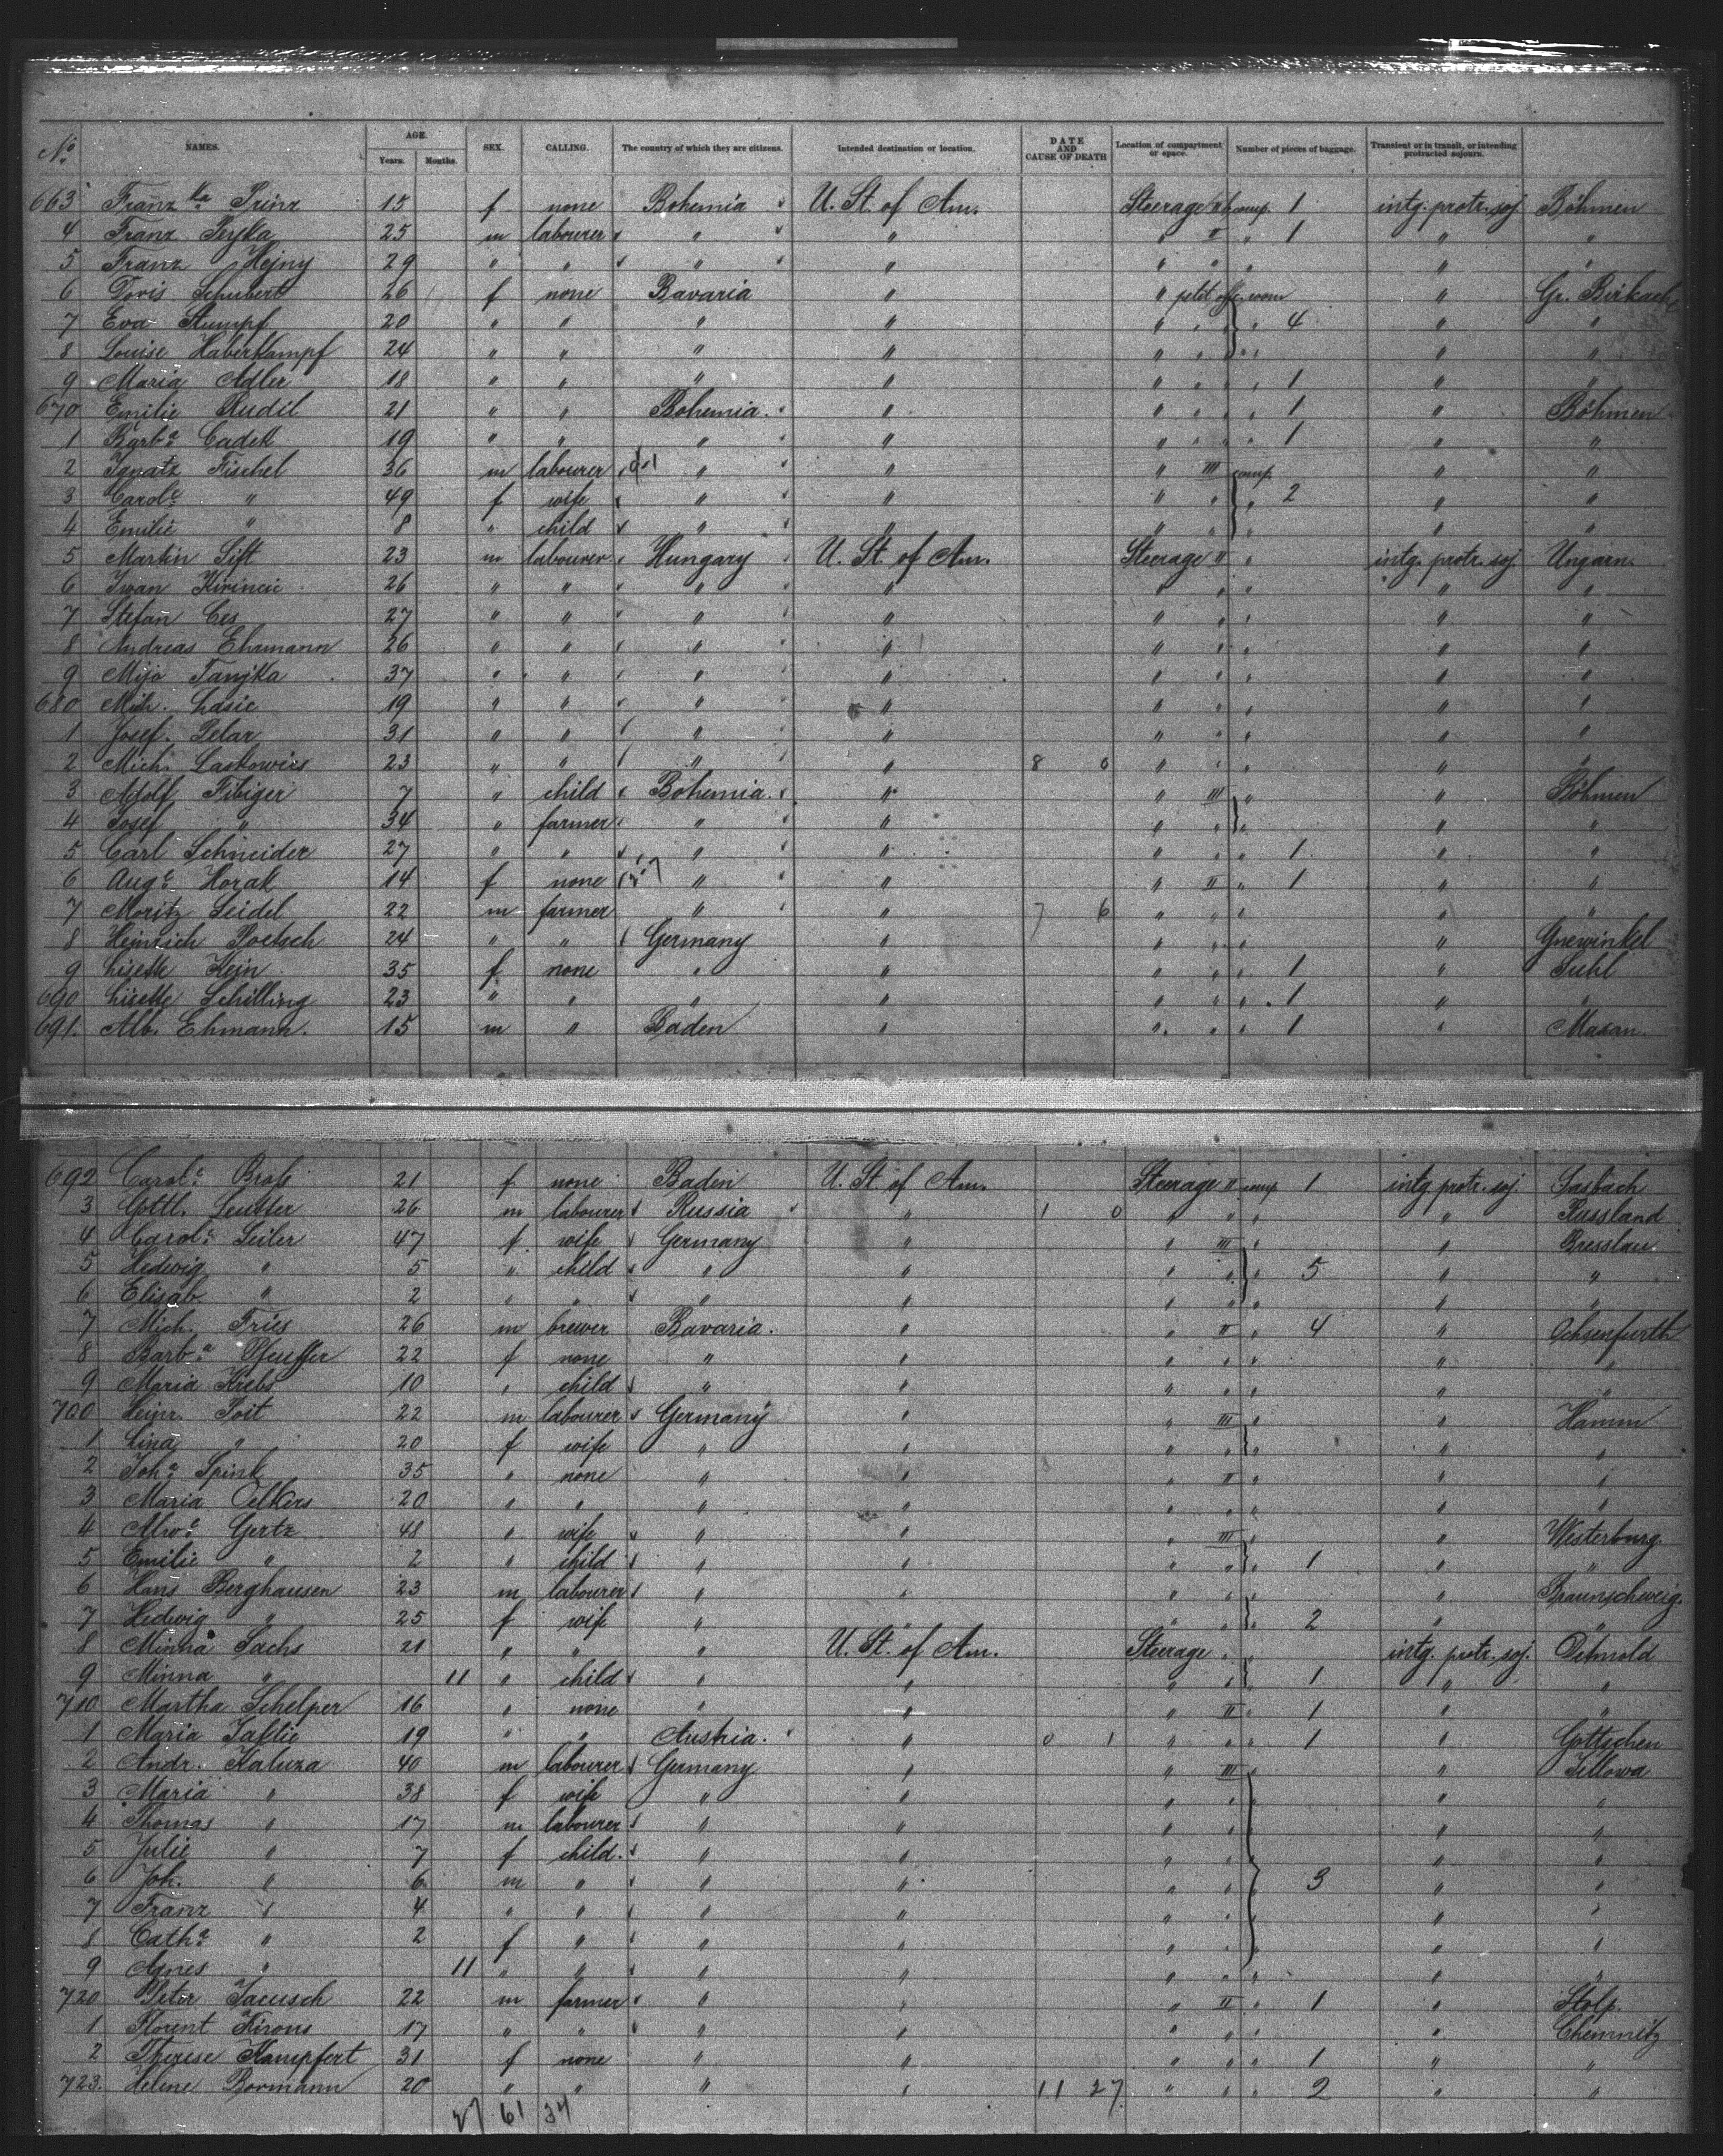 No. NAMES. AGE. Years. Months. SEX. CALLING. The country of which they are citizens. Intended destination or location. DATE AND CAUSE OF DEATH Location of compartment or space. Number of pieces of baggage. Transient or in transit, or intending protracted sojourn.
663 Franz ka Prinz 15 f none Bohemia U. St. of Am. Steerage II comp. 1 intg. protr. soj. Böhmen
4 Franz 25 m labourer " " " II " 1 " "
5 Franz Hejny 29 " " " " " " " " "
6 Doris Schubert 26 f none Bavaria " " petit off. room " Gr. Birkach
7 Eva Stumpf 20 " " " " " " " 4 " "
8 Louise Haberkampf 24 " " " " " " " " "
9 Maria Adler 18 " " " " " " " 1 " "
670 Emilie Rudil 21 " " Bohemia. " " " " 1 " Böhmen
1 Barba Cadek 19 " " " " " " " 1 " "
2 Ignatz Fischel 36 m labourer " " " III comp. " "
3 Carole " 49 f wife " " " " " 2 " "
4 Emilie " 8 " child " " " " " "
5 Martin Sift 23 m labourer Hungary U. St. of Am. Steerage II " intg. protr. soj. Ungarn.
6 Iwan Kirincic 26 " " " " " " " " "
7 Stefan Ces 27 " " " " " " " " "
8 Andreas Ehrmann 26 " " " " " " " " "
9 Mijo Tanjka 37 " " " " " " " " "
680 Mich. Lasic 19 " " " " " " " " "
1 Josef. Pelar 31 " " " " " " " " "
2 Mich. Laskowics 23 " " " " 8 0 " " " " "
3 Adolf Fibiger 7 " child Bohemia. " " III " " Böhmen
4 Josef " 34 " farmer " " " " " " "
5 Carl Schneider 27 " " " " " " " 1 " "
6 Auge Horak 14 f none " " " II " 1 " "
7 Moritz Seidel 22 m farmer " " 7 6 " " " " "
8 Heinrich Poetsch 24 " " Germany " " " " " Gnewinkel
9 Lisette Hein 35 f none " " " " " 1 " Suhl
690 Lisette Schilling 23 " " " " " " " 1 " "
691. Alb. Ehmann. 15 m " Baden " " " " 1 " Masan.
692 Carole Bross 21 f none Baden U. St. of Am. Steerage II comp. 1 intg. protr. soj. Sasbach
3 Gottl. Leutter 26 m labourer Russia " 1 0 " " " " Russland
4 Carole Seiler 47 f. wife Germany " " III " " Bresslau.
5 Hedwig " 5 " child " " " " " 5 " "
6 Elisab. " 2 " " " " " " " " "
7 Mich. Fries 26 m brewer Bavaria. " " II " 4 " Ochsenfurth
8 Barba Pfeuffer 22 f none " " " " " " "
9 Maria Krebs 10 " child " " " " " " "
700 Heinr. Poit 22 m labourer Germany " " III " " Hamm
1 Lina " 20 f wife " " " " " " "
2 Joha Spink 35 " none " " " II " " "
3 Maria Oelkers 20 " " " " " " " " "
4 Alwe Gertz 48 " wife " " " III " " Westerburg.
5 Emilie " 2 " child " " " " " 1 " "
6 Hans Berghausen 23 m labourer " " " " " " Braunschweig.
7 Hedwig " 25 f wife " " " " " 2 " "
8 Minna Sachs 21 " " " U. St. of Am. Steerage " " intg. protr. soj. Detmold
9 Minna " 11 " child " " " " " 1 " "
710 Martha Schelper 16 " none " " " II " 1 " "
1 Maria Jaklic 19 " " Austria. " 0 1 " " " 1 " Gottschen
2 Andr. Kaluza 40 m labourer Germany " " III " " Jellowa
3 Maria " 38 f wife " " " " " " "
4 Thomas " 17 m labourer " " " " " " "
5 Julie " 7 f child. " " " " " " "
6 Joh. " 6 m " " " " " " 3 " "
7 Franz " 4 " " " " " " " " "
8 Catha " 2 f " " " " " " " "
9 Agnes " 11 " " " " " " " " "
720 Peter Jacusch 22 m farmer " " " II " 1 " Stolp.
1 Florent Kirons 17 " " " " " " " " Chemnitz
2 Therese Kampfert 31 f none " " " " " 1 " "
723. Helene Bormann 20 " " " " 11 27 " " " 2 " "
27 61 34